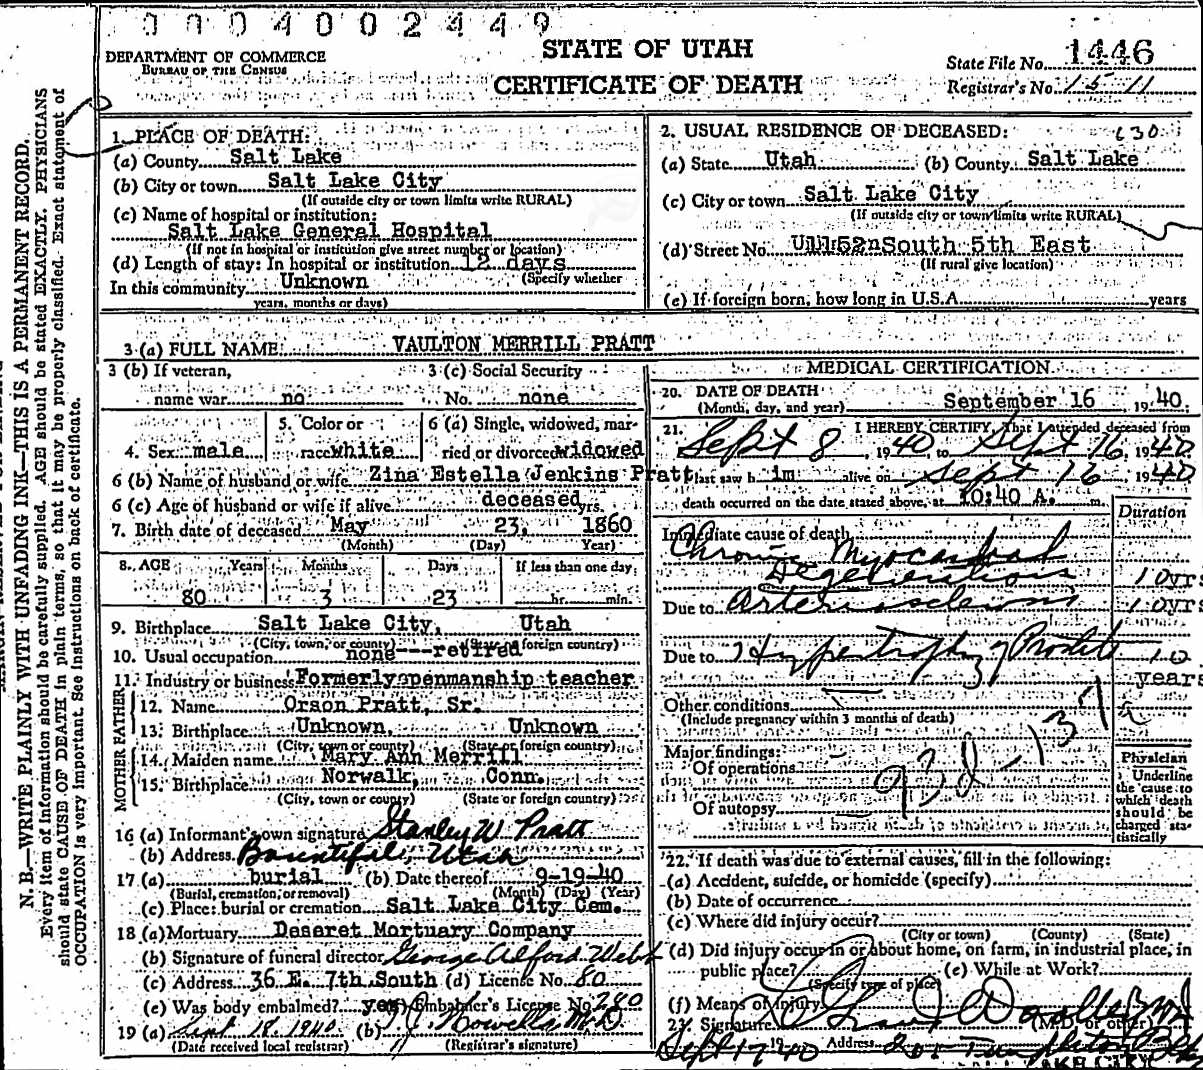 0004002449
DEPARTMENT OF COMMERCE
BUREAU OF THE CENSUS
STATE OF UTAH
CERTIFICATE OF DEATH
State File No. 1446
Registrar's No. 1511
N. B.—WRITE PLAINLY WITH UNFADING INK—THIS IS A PERMANENT RECORD.
Every item of information should be carefully supplied. AGE should be stated EXACTLY. PHYSICIANS
should state CAUSE OF DEATH in plain terms, so that it may be properly classified. Exact statement of
OCCUPATION is very important. See instructions on back of certificate.
1. PLACE OF DEATH:
(a) County Salt Lake
(b) City or town Salt Lake City
(If outside city or town limits write RURAL)
(c) Name of hospital or institution:
Salt Lake General Hospital
(If not in hospital or institution give street number or location)
(d) Length of stay: In hospital or institution 12 days
(Specify whether
In this community Unknown
years, months or days)
2. USUAL RESIDENCE OF DECEASED:
(a) State Utah (b) County Salt Lake
(c) City or town Salt Lake City
(If outside city or town limits write RURAL)
(d) Street No. South 5th East
(If rural give location)
(e) If foreign born, how long in U.S.A. years
3 (a) FULL NAME: VAULTON MERRILL PRATT
3 (b) If veteran,
name war no
3 (c) Social Security
No. none
4. Sex male
5. Color or
race white
6 (a) Single, widowed, mar-
ried or divorced widowed
6 (b) Name of husband or wife Zina Estella Jenkins Pratt
6 (c) Age of husband or wife if alive deceased yrs.
7. Birth date of deceased May 23, 1860
(Month) (Day) Year)
8. AGE Years Months Days If less than one day
80 3 23 hr. min.
9. Birthplace Salt Lake City, Utah
(City, town, or county) (State or foreign country)
10. Usual occupation none---retired
11. Industry or business Formerly penmanship teacher
FATHER
12. Name Orson Pratt, Sr.
13. Birthplace Unknown, Unknown
(City, town or county) (State or foreign country)
MOTHER
14. Maiden name Mary Ann Merrill
15. Birthplace Norwalk, Conn.
(City, town or county) (State or foreign country)
16 (a) Informant's own signature Stanley W. Pratt
(b) Address Bountiful, Utah
17 (a) burial (b) Date thereof 9-19-40
(Burial, cremation, or removal) (Month) (Day) (Year)
(c) Place: burial or cremation Salt Lake City Cem.
18 (a) Mortuary Deseret Mortuary Company
(b) Signature of funeral director George Alford Webb
(c) Address 36 E. 7th South (d) License No. 80
(e) Was body embalmed? yes (f) Embalmer's License No. 280
19 (a) Sept. 18, 1940 (b)
(Date received local registrar) (Registrar's signature)
MEDICAL CERTIFICATION
20. DATE OF DEATH
(Month, day, and year) September 16, 1940.
21. I HEREBY CERTIFY, That I attended deceased from
Sept 8, 1940, to Sept 16, 1940
last saw him alive on Sept 16, 1940
death occurred on the date stated above, at 10:40 A. m.
Duration
Immediate cause of death
Chronic Myocardial
Degeneration 10yrs
Due to Arteriosclerosis 10yrs
Due to Hypertrophy of Prostate 10
years
Other conditions
(Include pregnancy within 3 months of death)
Major findings:
Of operations
Of autopsy
93d - 137
Physician
Underline
the cause to
which death
should be
charged sta-
tistically
22. If death was due to external causes, fill in the following:
(a) Accident, suicide, or homicide (specify)
(b) Date of occurrence
(c) Where did injury occur?
(City or town) (County) (State)
(d) Did injury occur in or about home, on farm, in industrial place, in
public place? (e) While at Work?
(Specify type of place)
(f) Means of injury
23. Signature
(M.D. or other)
Sept 17 1940 Address